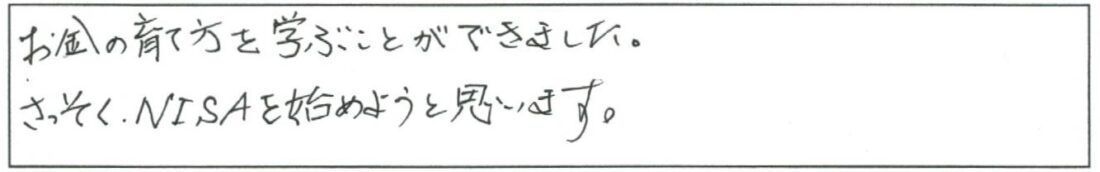 お金の育て方を学ぶことができました。
さっそく、NISAを始めようと思います。